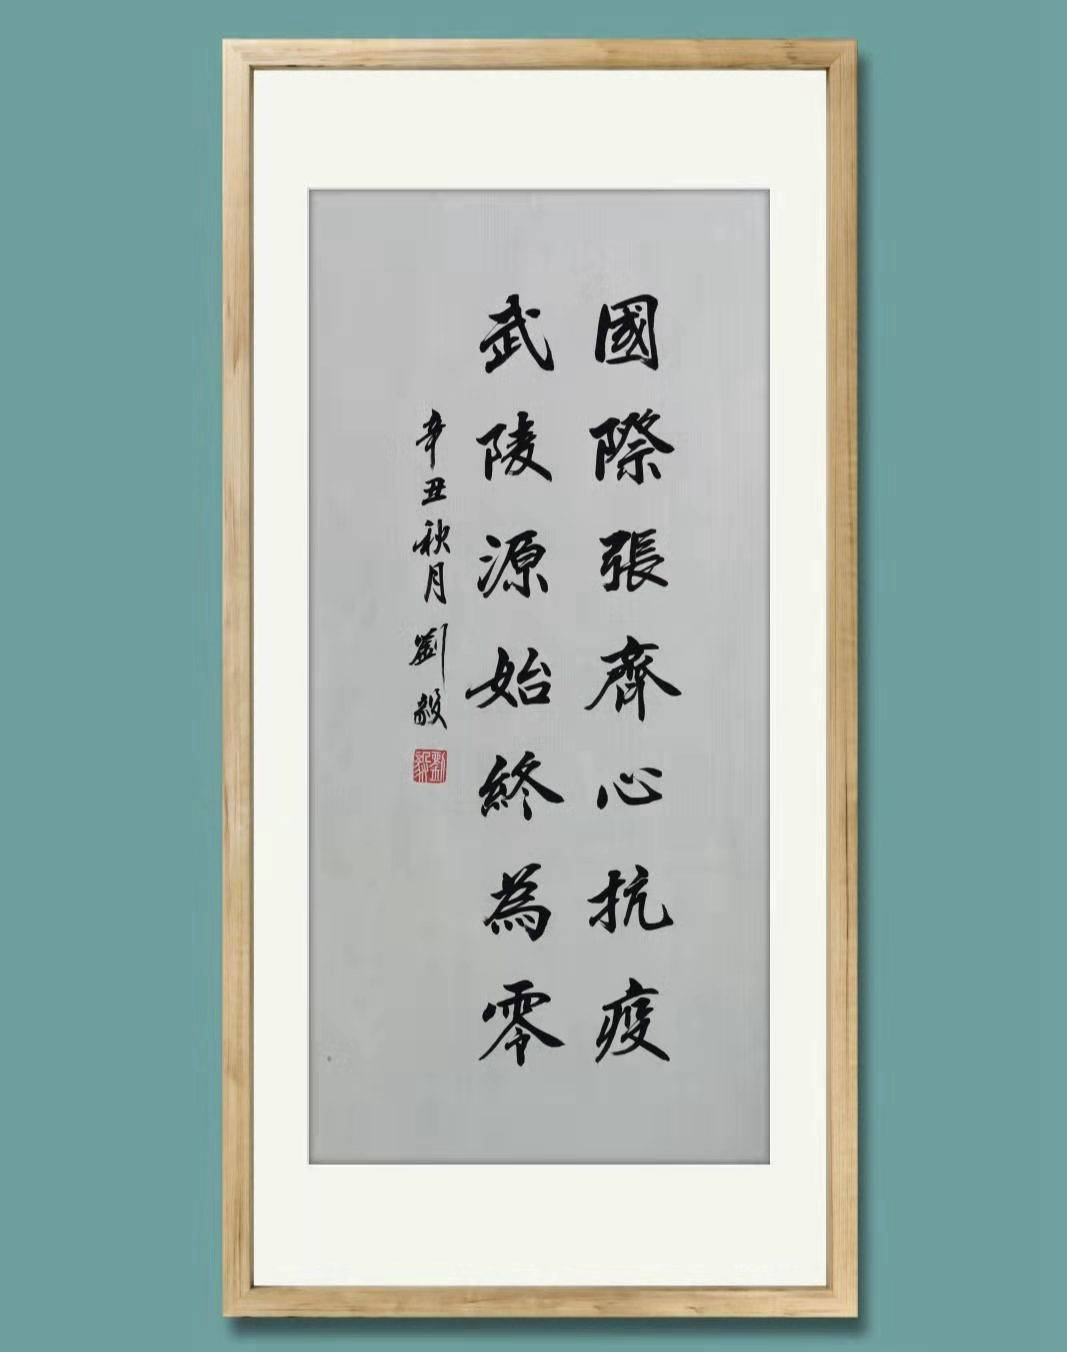 國際張齊心抗疫
武陵源始終為零
辛丑秋月劉毅
劉毅